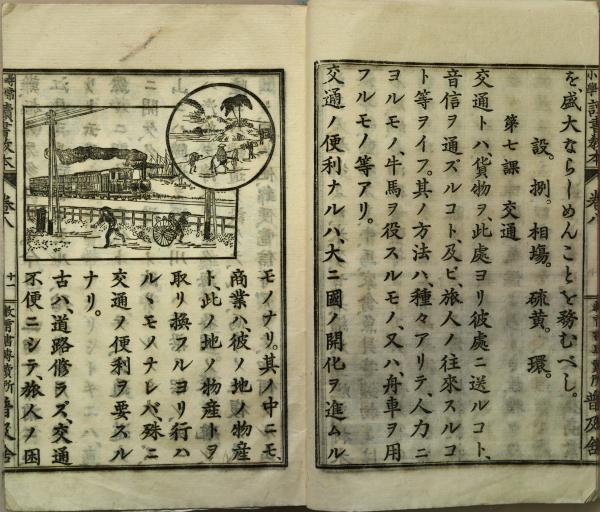 を、盛大ならしめんことを務むべし。
設。捌。相場。硫黄。環。
第七課　交通
交通トハ、貨物ヲ、此處ヨリ彼處ニ送ルコト、
音信ヲ通ズルコト及ビ旅人ノ往來スルコ
ト等ヲイフ。其ノ方法ハ、種々アリテ、人力ニ
ヨルモノ、牛馬ヲ役スルモノ、又ハ、舟車ヲ用
フルモノ等アリ。
交通ノ便利ナルハ、大ニ國ノ開化ヲ進ムル
モノナリ。其ノ中ニモ、
商業ハ、彼ノ地ノ物産
ト、此ノ地ノ物産トヲ
取リ換フルヨリ行ハ
ルヽモノナレバ、殊ニ
交通ヲ便利ヲ要スル
ナリ。
古ハ、道路修ラズ、交通
不便ニシテ、旅人ノ困
讀書教本
卷八
十一
教育書專賣所
普及舍